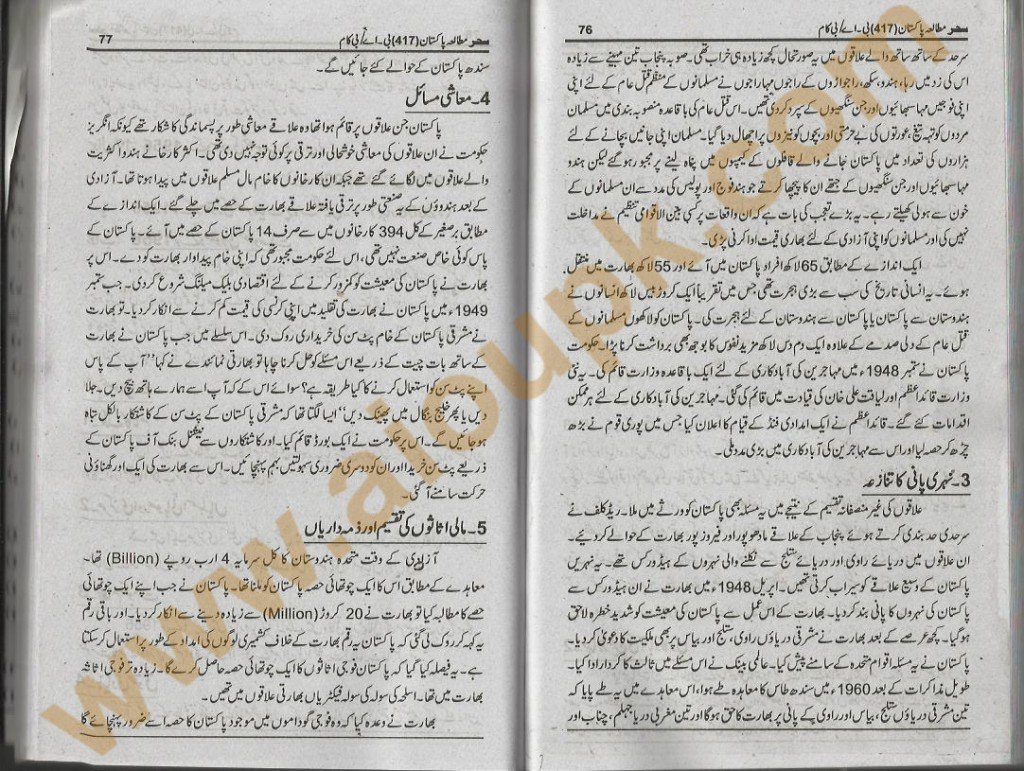 سحر مطالعہ پاکستان (417) بی۔اے/بی کام
76
سرحد کے ساتھ ساتھ والے علاقوں میں یہ صورتحال کچھ زیادہ ہی خراب تھی۔ صوبہ پنجاب تین مہینے سے زیادہ
اس کی زد میں رہا، ہندو، سکھ، راجواڑوں کے راجوں مہاراجوں نے مسلمانوں کے منظم قتل عام کے لئے اپنی
اپنی فوجیں مہاسبھائیوں اور جن سنگھیوں کے سپرد کر دی تھیں۔ اس قتل عام کی باقاعدہ منصوبہ بندی میں مسلمان
مردوں کو تہہ تیغ عورتوں کی بے حرمتی اور بچوں کو نیزوں پر اچھال دیا گیا۔ مسلمان اپنی جانیں بچانے کے لئے
ہزاروں کی تعداد میں پاکستان جانے والے قافلوں کے کیمپوں میں پناہ لینے پر مجبور ہو گئے لیکن ہندو
مہاسبھائیوں اور جن سنگھیوں کے جتھے ان کا پیچھا کرتے جو ہند فوج اور پولیس کی مدد سے ان مسلمانوں کے
خون سے ہولی کھیلتے رہے۔ یہ بڑے تعجب کی بات ہے کہ ان واقعات پر کسی بین الاقوامی تنظیم نے مداخلت
نہیں کی اور مسلمانوں کو اپنی آزادی کے لئے بھاری قیمت ادا کرنی پڑی۔
ایک اندازے کے مطابق 65 لاکھ افراد پاکستان میں آئے اور 55 لاکھ بھارت میں منتقل
ہوئے۔ یہ انسانی تاریخ کی سب سے بڑی ہجرت تھی جس میں تقریباً ایک کروڑ بیس لاکھ انسانوں نے
ہندوستان سے پاکستان یا پاکستان سے ہندوستان کے لئے ہجرت کی۔ پاکستان کو لاکھوں مسلمانوں کے
قتل عام کے دلی صدمے کے علاوہ ایک دم دس لاکھ مزید نفوس کا بوجھ بھی برداشت کرنا پڑا۔ حکومت
پاکستان نے ستمبر 1948ء میں مہاجرین کی آبادکاری کے لئے ایک باقاعدہ وزارت قائم کی۔ یہ نئی
وزارت قائداعظم اور لیاقت علی خان کی قیادت میں قائم کی گئی۔ مہاجرین کی آبادکاری کے لئے ہر ممکن
اقدامات کئے گئے۔ قائداعظم نے ایک امدادی فنڈ کے قیام کا اعلان کیا جس میں پوری قوم نے بڑھ
چڑھ کر حصہ لیا اور اس سے مہاجرین کی آبادکاری میں بڑی مدد ملی۔
3۔ نہری پانی کا تنازعہ
علاقوں کی غیر منصفانہ تقسیم کے نتیجے میں یہ مسئلہ بھی پاکستان کو ورثے میں ملا۔ ریڈ کلف نے
سرحدی حد بندی کرتے ہوئے پنجاب کے علاقے مادھوپور اور فیروز پور بھارت کے حوالے کر دیئے۔
ان علاقوں میں دریائے راوی اور دریائے ستلج سے نکلنے والی نہروں کے ہیڈ ورکس تھے۔ یہ نہریں
پاکستان کے وسیع علاقے کو سیراب کرتی تھیں۔ اپریل 1948ء میں بھارت نے ان ہیڈ ورکس سے
پاکستان کی نہروں کا پانی بند کر دیا۔ بھارت کے اس عمل سے پاکستان کی معیشت کو شدید خطرہ لاحق
ہو گیا۔ کچھ عرصے کے بعد بھارت نے مشرقی دریاؤں راوی، ستلج اور بیاس پر بھی ملکیت کا دعویٰ کر دیا۔
پاکستان نے یہ مسئلہ اقوام متحدہ کے سامنے پیش کیا۔ عالمی بینک نے اس مسئلے میں ثالث کا کردار ادا کیا۔
طویل مذاکرات کے بعد 1960ء میں سندھ طاس کا معاہدہ طے ہوا، اس معاہدے میں یہ طے پایا کہ
تین مشرقی دریاؤں ستلج، بیاس اور راوی کے پانی پر بھارت کا حق ہوگا اور تین مغربی دریا جہلم، چناب اور
سحر مطالعہ پاکستان (417) بی۔اے/بی کام
77
سندھ پاکستان کے حوالے کئے جائیں گے۔
4۔ معاشی مسائل
پاکستان جن علاقوں پر قائم ہوا تھا وہ علاقے معاشی طور پر پسماندگی کا شکار تھے کیونکہ انگریز
حکومت نے ان علاقوں کی معاشی خوشحالی اور ترقی پر کوئی توجہ نہیں دی تھی۔ اکثر کارخانے ہندو اکثریت
والے علاقوں میں لگائے گئے تھے جبکہ ان کارخانوں کا خام مال مسلم علاقوں میں پیدا ہوتا تھا۔ آزادی
کے بعد ہندوؤں کے یہ صنعتی طور پر ترقی یافتہ علاقے بھارت کے حصے میں چلے گئے۔ ایک اندازے کے
مطابق برصغیر کے کل 394 کارخانوں میں سے صرف 14 پاکستان کے حصے میں آئے۔ پاکستان کے
پاس کوئی خاص صنعت نہیں تھی، اس لئے حکومت مجبور تھی کہ اپنی خام پیداوار بھارت کو دے۔ اس پر
بھارت نے پاکستان کی معیشت کو کمزور کرنے کے لئے اقتصادی بلیک میلنگ شروع کر دی۔ جب ستمبر
1949ء میں پاکستان نے بھارت کی تقلید میں اپنی کرنسی کی قیمت کم کرنے سے انکار کر دیا۔ تو بھارت
نے مشرقی پاکستان کے خام پٹ سن کی خریداری روک دی۔ اس سلسلے میں جب پاکستان نے بھارت
کے ساتھ بات چیت کے ذریعے اس مسئلے کو حل کرنا چاہا تو بھارتی نمائندے نے کہا ”آپ کے پاس
اپنے پٹ سن کو استعمال کرنے کا کیا طریقہ ہے؟ سوائے اس کے کہ آپ اسے ہمارے ہاتھ بیچ دیں۔ جلا
دیں یا پھر خلیج بنگال میں پھینک دیں“ ایسا لگتا تھا کہ مشرقی پاکستان کے پٹ سن کے کاشتکار بالکل تباہ
ہو جائیں گے۔ اس پر حکومت نے ایک بورڈ قائم کیا۔ اور کاشتکاروں سے نیشنل بنک آف پاکستان کے
ذریعے پٹ سن خریدا اور ان کو دوسری ضروری سہولتیں بہم پہنچائیں۔ اس سے بھارت کی ایک اور گھناؤنی
حرکت سامنے آ گئی۔
5۔ مالی اثاثوں کی تقسیم اور ذمہ داریاں
آزادی کے وقت متحدہ ہندوستان کا کل سرمایہ 4 ارب روپے (Billion) تھا۔
معاہدے کے مطابق اس کا ایک چوتھائی حصہ پاکستان کو ملنا تھا۔ پاکستان نے جب اپنے ایک چوتھائی
حصے کا مطالبہ کیا تو بھارت نے 20 کروڑ (Million) سے زیادہ دینے سے انکار کر دیا۔ اور باقی رقم
یہ کہہ کر روک لی گئی کہ پاکستان یہ رقم بھارت کے خلاف کشمیری لوگوں کی امداد کے طور پر استعمال کر سکتا
ہے۔ یہ فیصلہ کیا گیا کہ پاکستان فوجی اثاثوں کا ایک چوتھائی حصہ حاصل کرے گا۔ زیادہ تر فوجی اثاثہ
بھارت میں تھا۔ اسلحہ کی سولہ کی سولہ فیکٹریاں بھارتی علاقوں میں تھیں۔
بھارت نے وعدہ کیا کہ وہ فوجی گوداموں میں موجود پاکستان کا حصہ اسے ضرور پہنچائے گا
www.aioupk.com